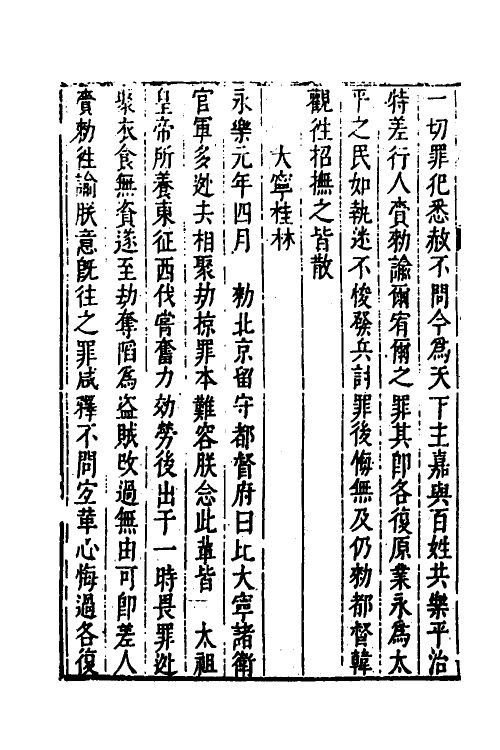 一切罪犯悉赦不問今爲天下主嘉與百姓共樂平治
特差行人賫勑諭爾宥爾之罪其卽各復原業永爲太
平之民如執迷不悛發兵討罪後悔無及仍勑都督韓
觀徃招撫之皆散
大寧桂林
永樂元年四月 勑北京留守都督府曰比大寧諸衛
官軍多逊去相聚劫掠罪本難容朕念此軰皆 太祖
皇帝所養東征西伐嘗奮力効勞後出于一時畏罪逊
聚衣食無資遂至劫奪陷爲盗賊改過無由可卽差人
賫勑徃諭朕意旣徃之罪咸釋不問宐革心悔過各復